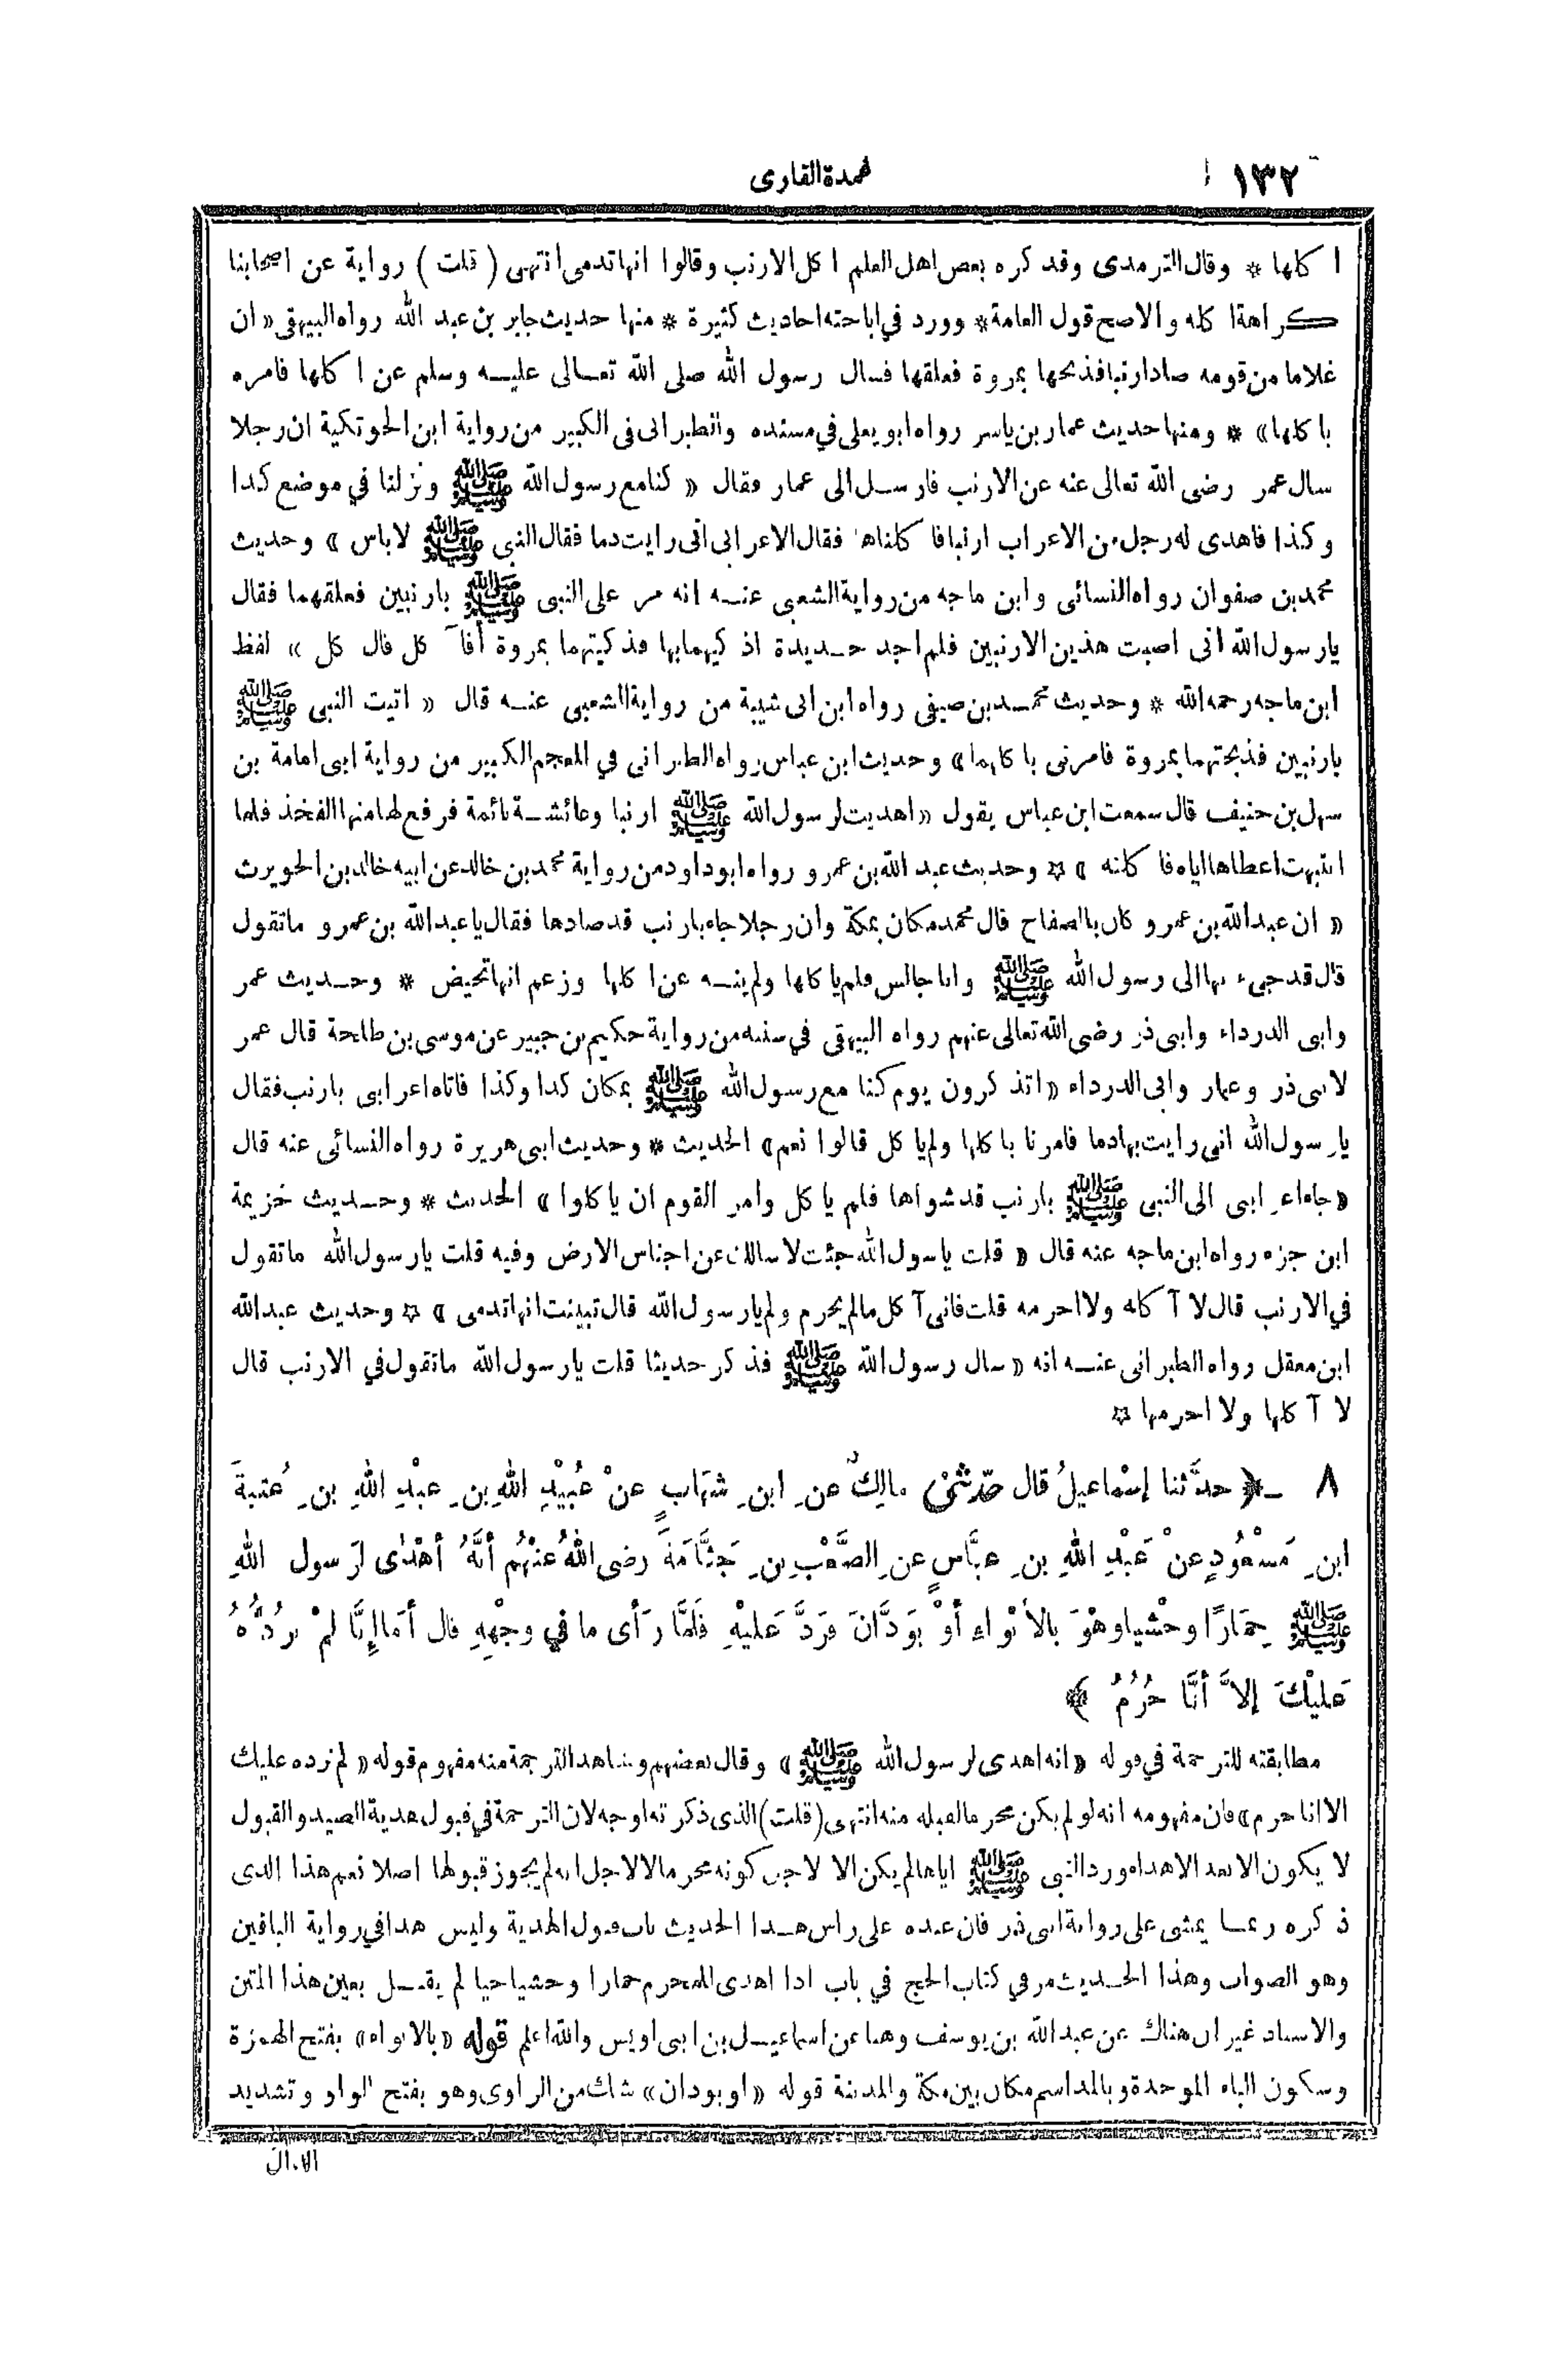 ١٣٢ عمدة القارى
اكلها * وقال الترمذى وقد كره بعض اهل العلم اكل الارنب وقالوا انها تدمى انتهى ( قلت ) رواية عن اصحابنا
كراهة اكله والاصح قول العامة * وورد في اباحته احاديث كثيرة * منها حديث جابر بن عبد الله رواه البيهقى « ان
غلاما من قومه صاد ارنبا فذبحها بمروة فعلقها فسال رسول الله صلى الله تعالى عليه وسلم عن اكلها فامره
باكلها » * ومنها حديث عمار بن ياسر رواه ابو يعلى في مسنده والطبرانى فى الكبير من رواية ابن الحوتكية ان رجلا
سال عمر رضى الله تعالى عنه عن الارنب فارسل الى عمار فقال « كنا مع رسول الله ﷺ ونزلنا في موضع كذا
وكذا فاهدى له رجل من الاعراب ارنبا فاكلناها فقال الاعرابى انى رايت دما فقال النبى ﷺ لاباس » وحديث
محمد بن صفوان رواه النسائى وابن ماجه من رواية الشعبى عنه انه مر على النبى ﷺ بارنبين فعلقهما فقال
يارسول الله انى اصبت هذين الارنبين فلم اجد حديدة اذكيهما بها فذكيتهما بمروة أفآ كل قال كل » لفظ
ابن ماجه رحمه الله * وحديث محمد بن صيفى رواه ابن ابى شيبة من رواية الشعبى عنه قال « اتيت النبى ﷺ
بارنبين فذبحتهما بمروة فامرنى باكلهما » وحديث ابن عباس رواه الطبرانى في المعجم الكبير من رواية ابى امامة بن
سهل بن حنيف قال سمعت ابن عباس يقول « اهديت لرسول الله ﷺ ارنبا وعائشة نائمة فرفع لها منها الفخذ فلما
انتبهت اعطاها اياه فاكلته » * وحديث عبد الله بن عمرو رواه ابو داود من رواية محمد بن خالد عن ابيه خالد بن الحويرث
« ان عبد الله بن عمرو كان بالصفاح قال محمد مكان بمكة وان رجلا جاء بارنب قد صادها فقال يا عبد الله بن عمرو ماتقول
قال قد جىء بها الى رسول الله ﷺ وانا جالس فلم ياكلها ولم ينه عن اكلها وزعم انها تحيض * وحديث عمر
وابى الدرداء وابى ذر رضى الله تعالى عنهم رواه البيهقى في سننه من رواية حكيم بن جبير عن موسى بن طلحة قال عمر
لابى ذر وعمار وابى الدرداء « اتذكرون يوم كنا مع رسول الله ﷺ بمكان كذا وكذا فاتاه اعرابى بارنب فقال
يارسول الله انى رايت بها دما فامرنا باكلها ولم ياكل قالوا نعم » الحديث * وحديث ابى هريرة رواه النسائى عنه قال
« جاء اعرابى الى النبى ﷺ بارنب قد شواها فلم ياكل وامر القوم ان ياكلوا » الحديث * وحديث خزيمة
ابن جزء رواه ابن ماجه عنه قال « قلت ياسول الله جئت لاسالك عن اجناس الارض وفيه قلت يارسول الله ماتقول
في الارنب قال لا آكله ولا احرمه قلت فانى آكل مالم يحرم ولم يارسول الله قال تبينت انها تدمى » * وحديث عبد الله
ابن معقل رواه الطبرانى عنه انه « سال رسول الله ﷺ فذكر حديثا قلت يارسول الله ماتقول في الارنب قال
لا آكلها ولا احرمها *
٨ - ﴿ حدَّثنا إسْماعيلُ قال حدّثنى مالِكٌ عنِ ابنِ شِهَابٍ عنْ عُبَيْدِ اللهِ بنِ عبْدِ اللهِ بنِ عُتبةَ
ابنِ مَسْعُودٍ عنْ عَبْدِ اللهِ بنِ عبَّاسٍ عنِ الصَّعْبِ بنِ جَثَّامَةَ رضى اللهُ عنْهُم أنَّهُ أهْدَى لرَسول اللهِ
ﷺ حِمَارًا وحْشيا وهْوَ بالأبْواءِ أوْ بوَدَّانَ فرَدَّ عَليْهِ فَلَمَّا رَأى ما في وجْهِهِ قال أمَا إنَّا لمْ نرُدُّهُ
عَليْكَ إلاَّ أنَّا حُرُمٌ ﴾
مطابقته للترجمة في قوله « انه اهدى لرسول الله ﷺ » وقال بعضهم وشاهد الترجمة منه مفهوم قوله « لم نرده عليك
الا انا حرم » فان مفهومه انه لو لم يكن محرما لقبله منه انتهى (قلت) الذى ذكرته اوجه لان الترجمة في قبول هدية الصيد والقبول
لا يكون الا بعد الاهداء ورد النبى ﷺ اياها لم يكن الا لاجل كونه محرما لا لاجل انه لم يجوز قبولها اصلا نعم هذا الذى
ذكره ربما يمشى على رواية ابى ذر فان عنده على راس هذا الحديث باب قبول الهدية وليس هذا في رواية الباقين
وهو الصواب وهذا الحديث مر في كتاب الحج في باب اذا اهدى للمحرم حمارا وحشيا حيا لم يقبل بعين هذا المتن
والاسناد غير ان هناك عن عبد الله بن يوسف وهنا عن اسماعيل بن ابى اويس والله اعلم قوله « بالابواء » بفتح الهمزة
وسكون الباء الموحدة وبالمد اسم مكان بين مكة والمدينة قوله « او بودان » شك من الراوى وهو بفتح الواو وتشديد